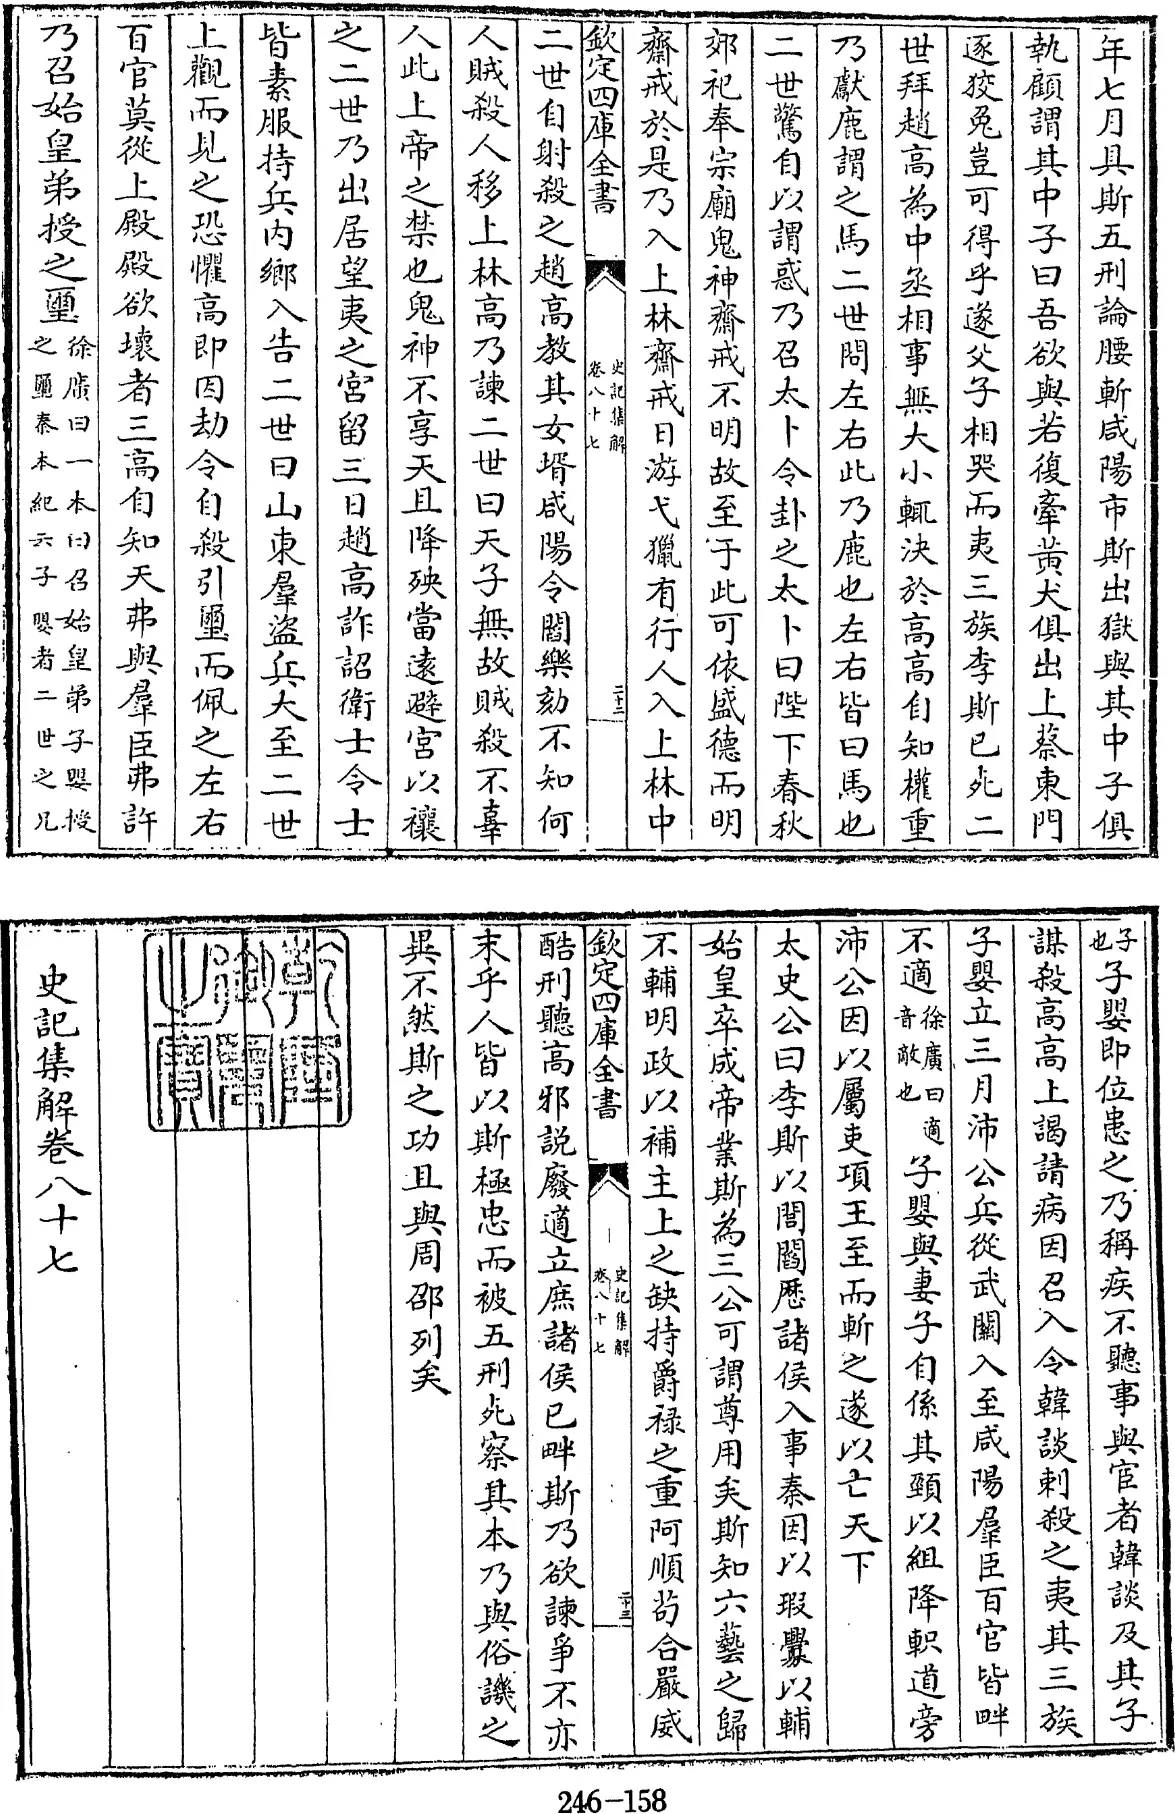 年七月具斯五刑論腰斬咸陽市斯出獄與其中子俱
執顧謂其中子曰吾欲與若復牽黃犬俱出上蔡東門
逐狡兔豈可得乎遂父子相哭而夷三族李斯已死二
世拜趙高為中丞相事無大小輒決於高高自知權重
乃獻鹿謂之馬二世問左右此乃鹿也左右皆曰馬也
二世驚自以謂惑乃召太卜令卦之太卜曰陛下春秋
郊祀奉宗廟鬼神齋戒不明故至于此可依盛德而明
齋戒於是乃入上林齋戒日游弋獵有行人入上林中
欽定四庫全書
史記集解
卷八十七
二十三
二世自射殺之趙高教其女壻咸陽令閻樂劾不知何
人賊殺人移上林高乃諫二世曰天子無故賊殺不辜
人此上帝之禁也鬼神不享天且降殃當遠避宮以禳
之二世乃出居望夷之宮留三日趙高詐詔衛士令士
皆素服持兵內鄉入告二世曰山東羣盜兵大至二世
上觀而見之恐懼高即因劫令自殺引璽而佩之左右
百官莫從上殿殿欲壞者三高自知天弗與羣臣弗許
乃召始皇弟授之璽
徐廣曰一本曰召始皇弟子嬰授
之璽秦本紀云子嬰者二世之兄
子
也
子嬰即位患之乃稱疾不聽事與宦者韓談及其子
謀殺高高上謁請病因召入令韓談刺殺之夷其三族
子嬰立三月沛公兵從武關入至咸陽羣臣百官皆畔
不適
徐廣曰適
音敵也
子嬰與妻子自係其頸以組降軹道旁
沛公因以屬吏項王至而斬之遂以亡天下
太史公曰李斯以閭閻歷諸侯入事秦因以瑕釁以輔
始皇卒成帝業斯為三公可謂尊用矣斯知六藝之歸
不輔明政以補主上之缺持爵祿之重阿順苟合嚴威
欽定四庫全書
史記集解
卷八十七
二十三
酷刑聽高邪說廢適立庶諸侯已畔斯乃欲諫爭不亦
末乎人皆以斯極忠而被五刑死察其本乃與俗議之
異不然斯之功且與周邵列矣
乾隆御覽之寶
史記集解卷八十七
246-158